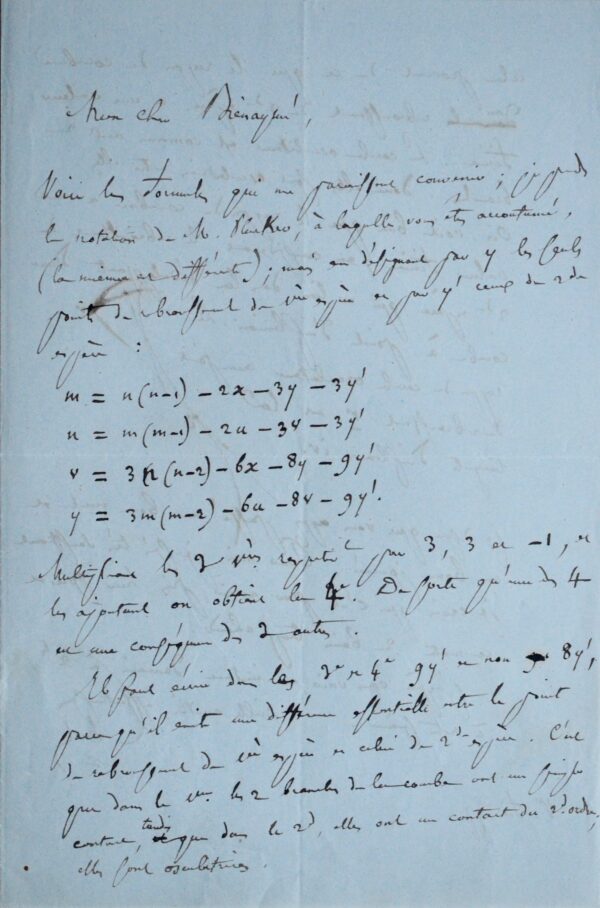 Mon cher Bienaymé,
Voici les formules qui me paraissent convenir; je prends
la notation de M. Plucker, à laquelle vous êtes accoutumé,
(la mienne est différente); mais en désignant par y les seuls
points de rebroussement de 1ère espèce et par y' ceux de 2de
espèce :
m = n(n-1) - 2x - 3y - 3y'
n = m(m-1) - 2u - 3v - 3y'
v = 3n(n-2) - 6x - 8y - 9y'
y = 3m(m-2) - 6u - 8v - 9y'.
Multipliant les 3 1ères respectt par 3, 3 et -1, et
les ajoutant on obtient la 4e. De sorte qu'une des 4
est une conséquence des 3 autres.
Il faut écrire dans les 3e et 4e 9y' et non 8y',
parce qu'il existe une différence essentielle entre le point
de rebroussement de 1ère espèce et celui de 2de espèce. C'est
que dans le 1er les 2 branches de la courbe ont un simple
contact, tandis que dans le 2d, elles ont un contact du 2d ordre,
elles sont osculatrices.